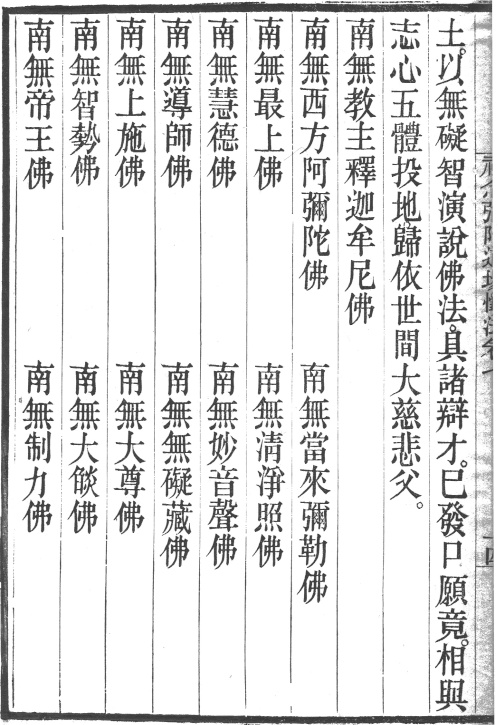 土。以無礙智演說佛法。具諸辯才。已發口願竟。相與
志心五體投地歸依世間大慈悲父。
南無教主釋迦牟尼佛
南無西方阿彌陀佛　南無當來彌勒佛
南無最上佛　南無清淨照佛
南無慧德佛　南無妙音聲佛
南無導師佛　南無無礙藏佛
南無上施佛　南無大尊佛
南無智勢佛　南無大燄佛
南無帝王佛　南無制力佛